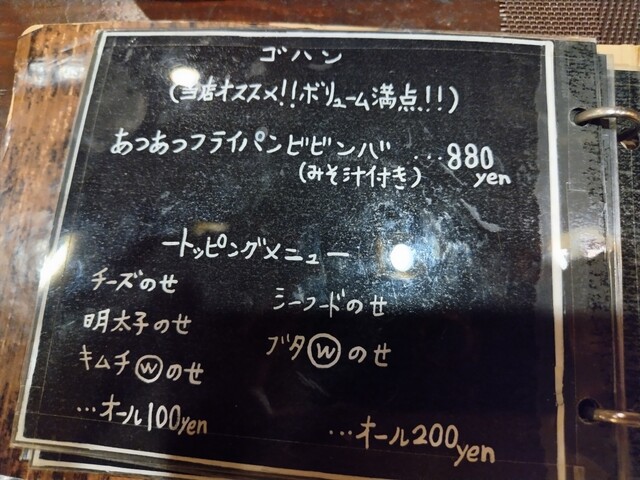 ゴハン
(当店オススメ!!ボリューム満点!!)
あつあつフライパンビビンバ …880
yen
(みそ汁付き)
ートッピングメニューー
チーズのせ
明太子のせ
キムチⓌのせ
…オール100yen
シーフードのせ
ブタⓌのせ
…オール200yen